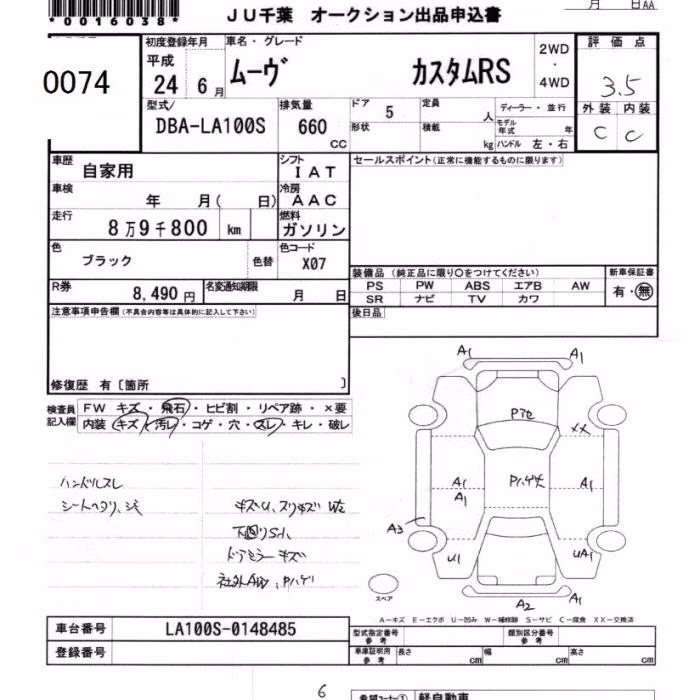 *0016038*
JU千葉 オークション出品申込書
月 日AA
0074
初度登録年月 車名・グレード 2WD ・ 4WD 評価点
平成 24 6月 ムーヴ カスタムRS 3.5
型式/ DBA-LA100S 排気量 660 CC ドア 5 定員 人 ディーラー・並行 外装 内装
形状 積載 kg モデル年式 年 ハンドル 左・右 C C
車歴 自家用 シフト IAT セールスポイント(正常に機能するものに限ります)
車検 年 月( 日) 冷房 AAC
走行 8万9千800 km 燃料 ガソリン
色 ブラック 色替 色コード X07
装備品(純正品に限り○をつけてください) 新車保証書
R券 8,490円 名変通知期限 月 日 PS PW ABS エアB AW 有・無
SR ナビ TV カワ
注意事項申告欄(不具合内容等は具体的に記入して下さい) 後日品
修復歴 有〔箇所 〕
検査員記入欄 FW キズ・飛石・ヒビ割・リペア跡・×要
内装 キズ・汚レ・コゲ・穴・スレ・キレ・破レ
A1 A1
P飛
XX
A1 A1 A1
A3
U1 UA1
A2 A1
ハンドルスレ
シートヘタリ、シミ
キズU、スリキズ
下回りサビ
ドアミラーキズ
社外AW、Pハゲ
スペア
A−キズ E−エクボ U−凹み W−補修跡 S−サビ C−腐食 XX−交換済
車台番号 LA100S-0148485 型式指定番号 参考 類別区分番号 参考
登録番号 車庫証明用 参考 長さ cm 幅 cm 高さ cm
6
希望コーナー① 軽自動車